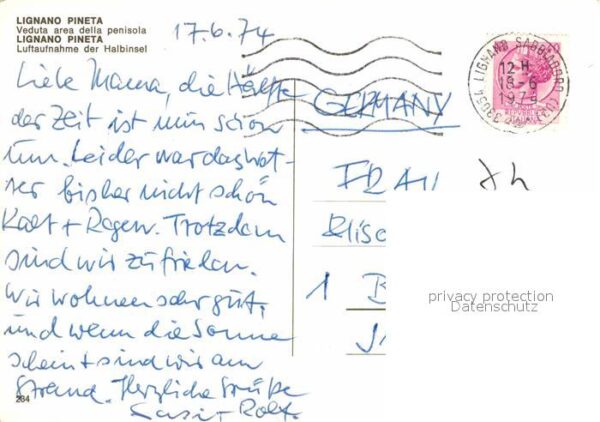 LIGNANO PINETA
Veduta area della penisola
LIGNANO PINETA
Luftaufnahme der Halbinsel
17.6.74
Liebe Mama, die Hälfte
der Zeit ist nun schon
um. Leider war das Wet-
ter bisher nicht schön
Kalt + Regen. Trotzdem
sind wir zufrieden.
Wir wohnen sehr gut,
und wenn die Sonne
scheint sind wir am
Strand. Herzliche Grüße
+ Rolf
284
GERMANY
FRAU
Elis
1 B
33054 LIGNANO SABBIADORO (UD)
12-H.
18-6
1974
privacy protection
Datenschutz